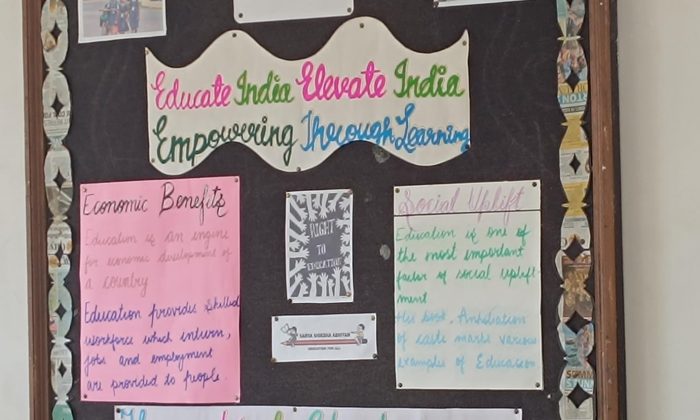 Educate India Elevate India
Empowering Through Learning
Economic Benefits
Education is an engine
for economic development of
a country
Education provides skilled
workforce which inturn,
jobs and employment
are provided to people.
RIGHT
TO
EDUCATION
SARVA SHIKSHA ABHIYAN
EDUCATION FOR ALL
Social Uplift
Education is one of
the most important
factor of social uplift-
ment
His book, Anhilation
of caste marks various
examples of Education